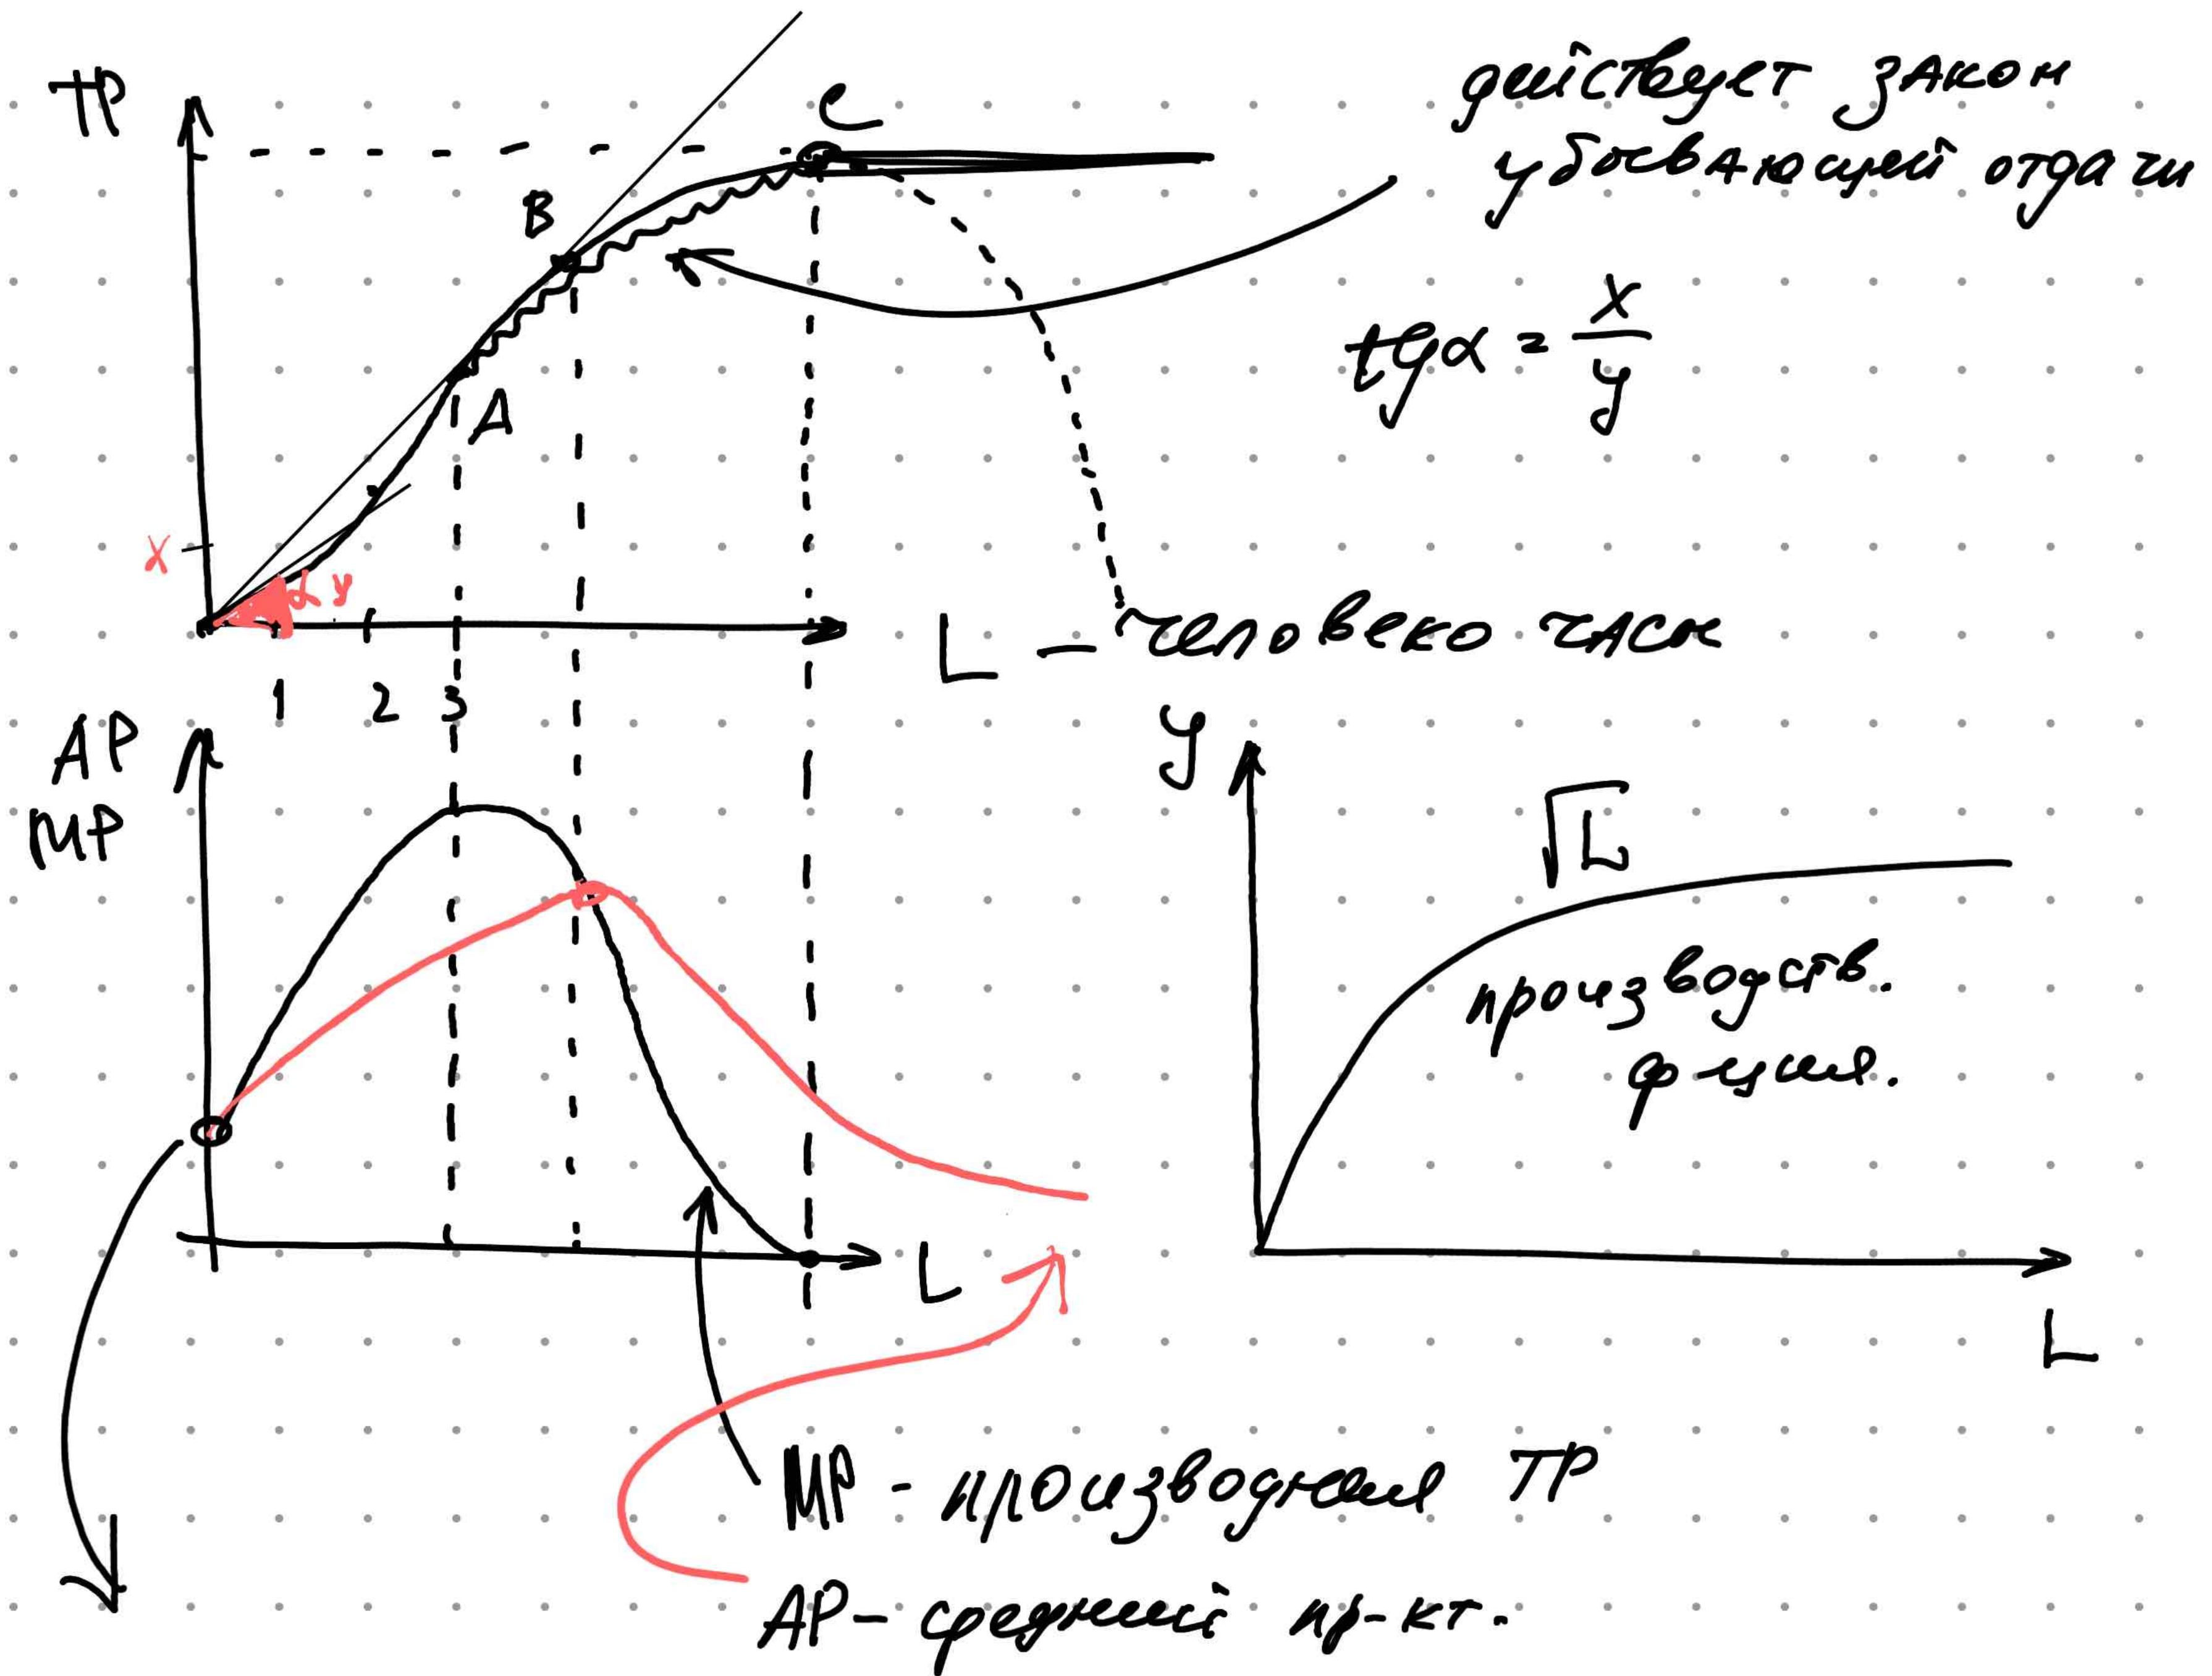 TP
C
B
A
действует закон
убывающей отдачи
tgα = x/y
x
α y
L - человеко часы
1 2 3
AP
MP
L
y
√L
производств.
ф-ция.
L
MP - производная TP
AP - средний пр-кт.